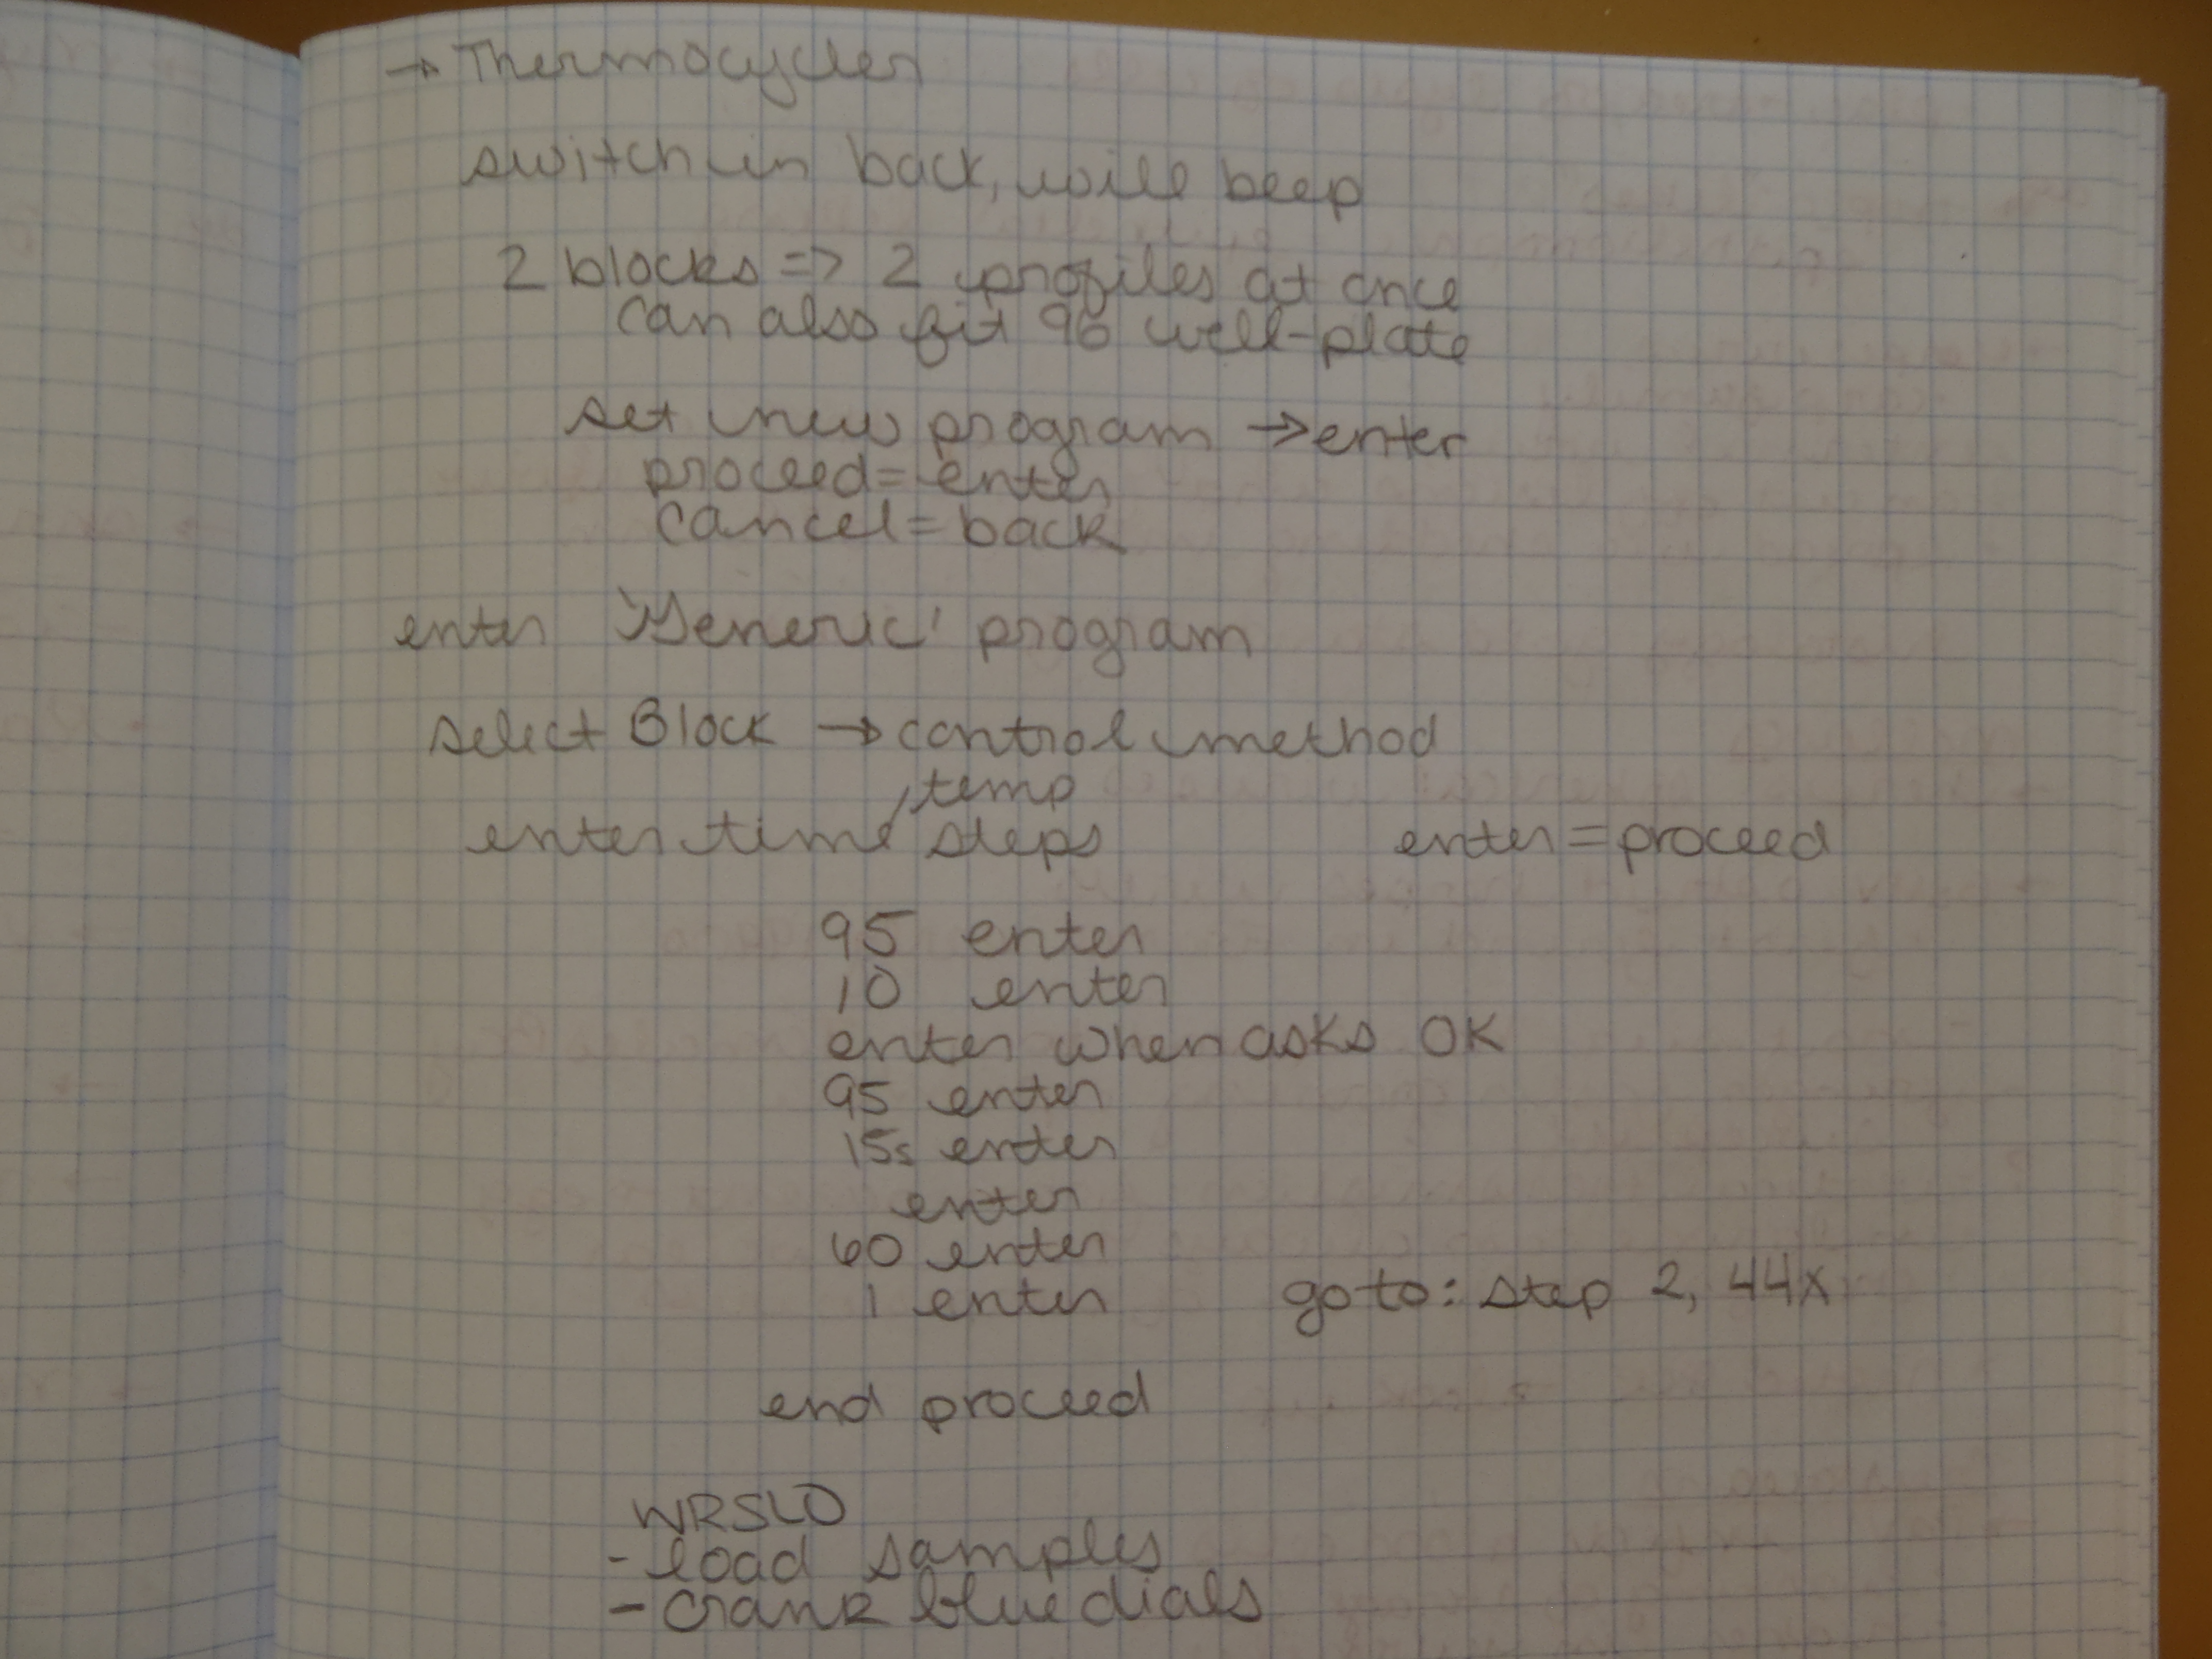 → Thermocycler
switch in back, will beep
2 blocks => 2 profiles at once
can also fit 96 well-plate
set new program → enter
proceed = enter
cancel = back
enter 'Generic' program
select Block → control method
, temp
enter time steps enter = proceed
95 enter
10 enter
enter when asks OK
95 enter
15s enter
enter
60 enter
1 enter go to: step 2, 44x
end proceed
WRSLD
- load samples
- crank blue dials